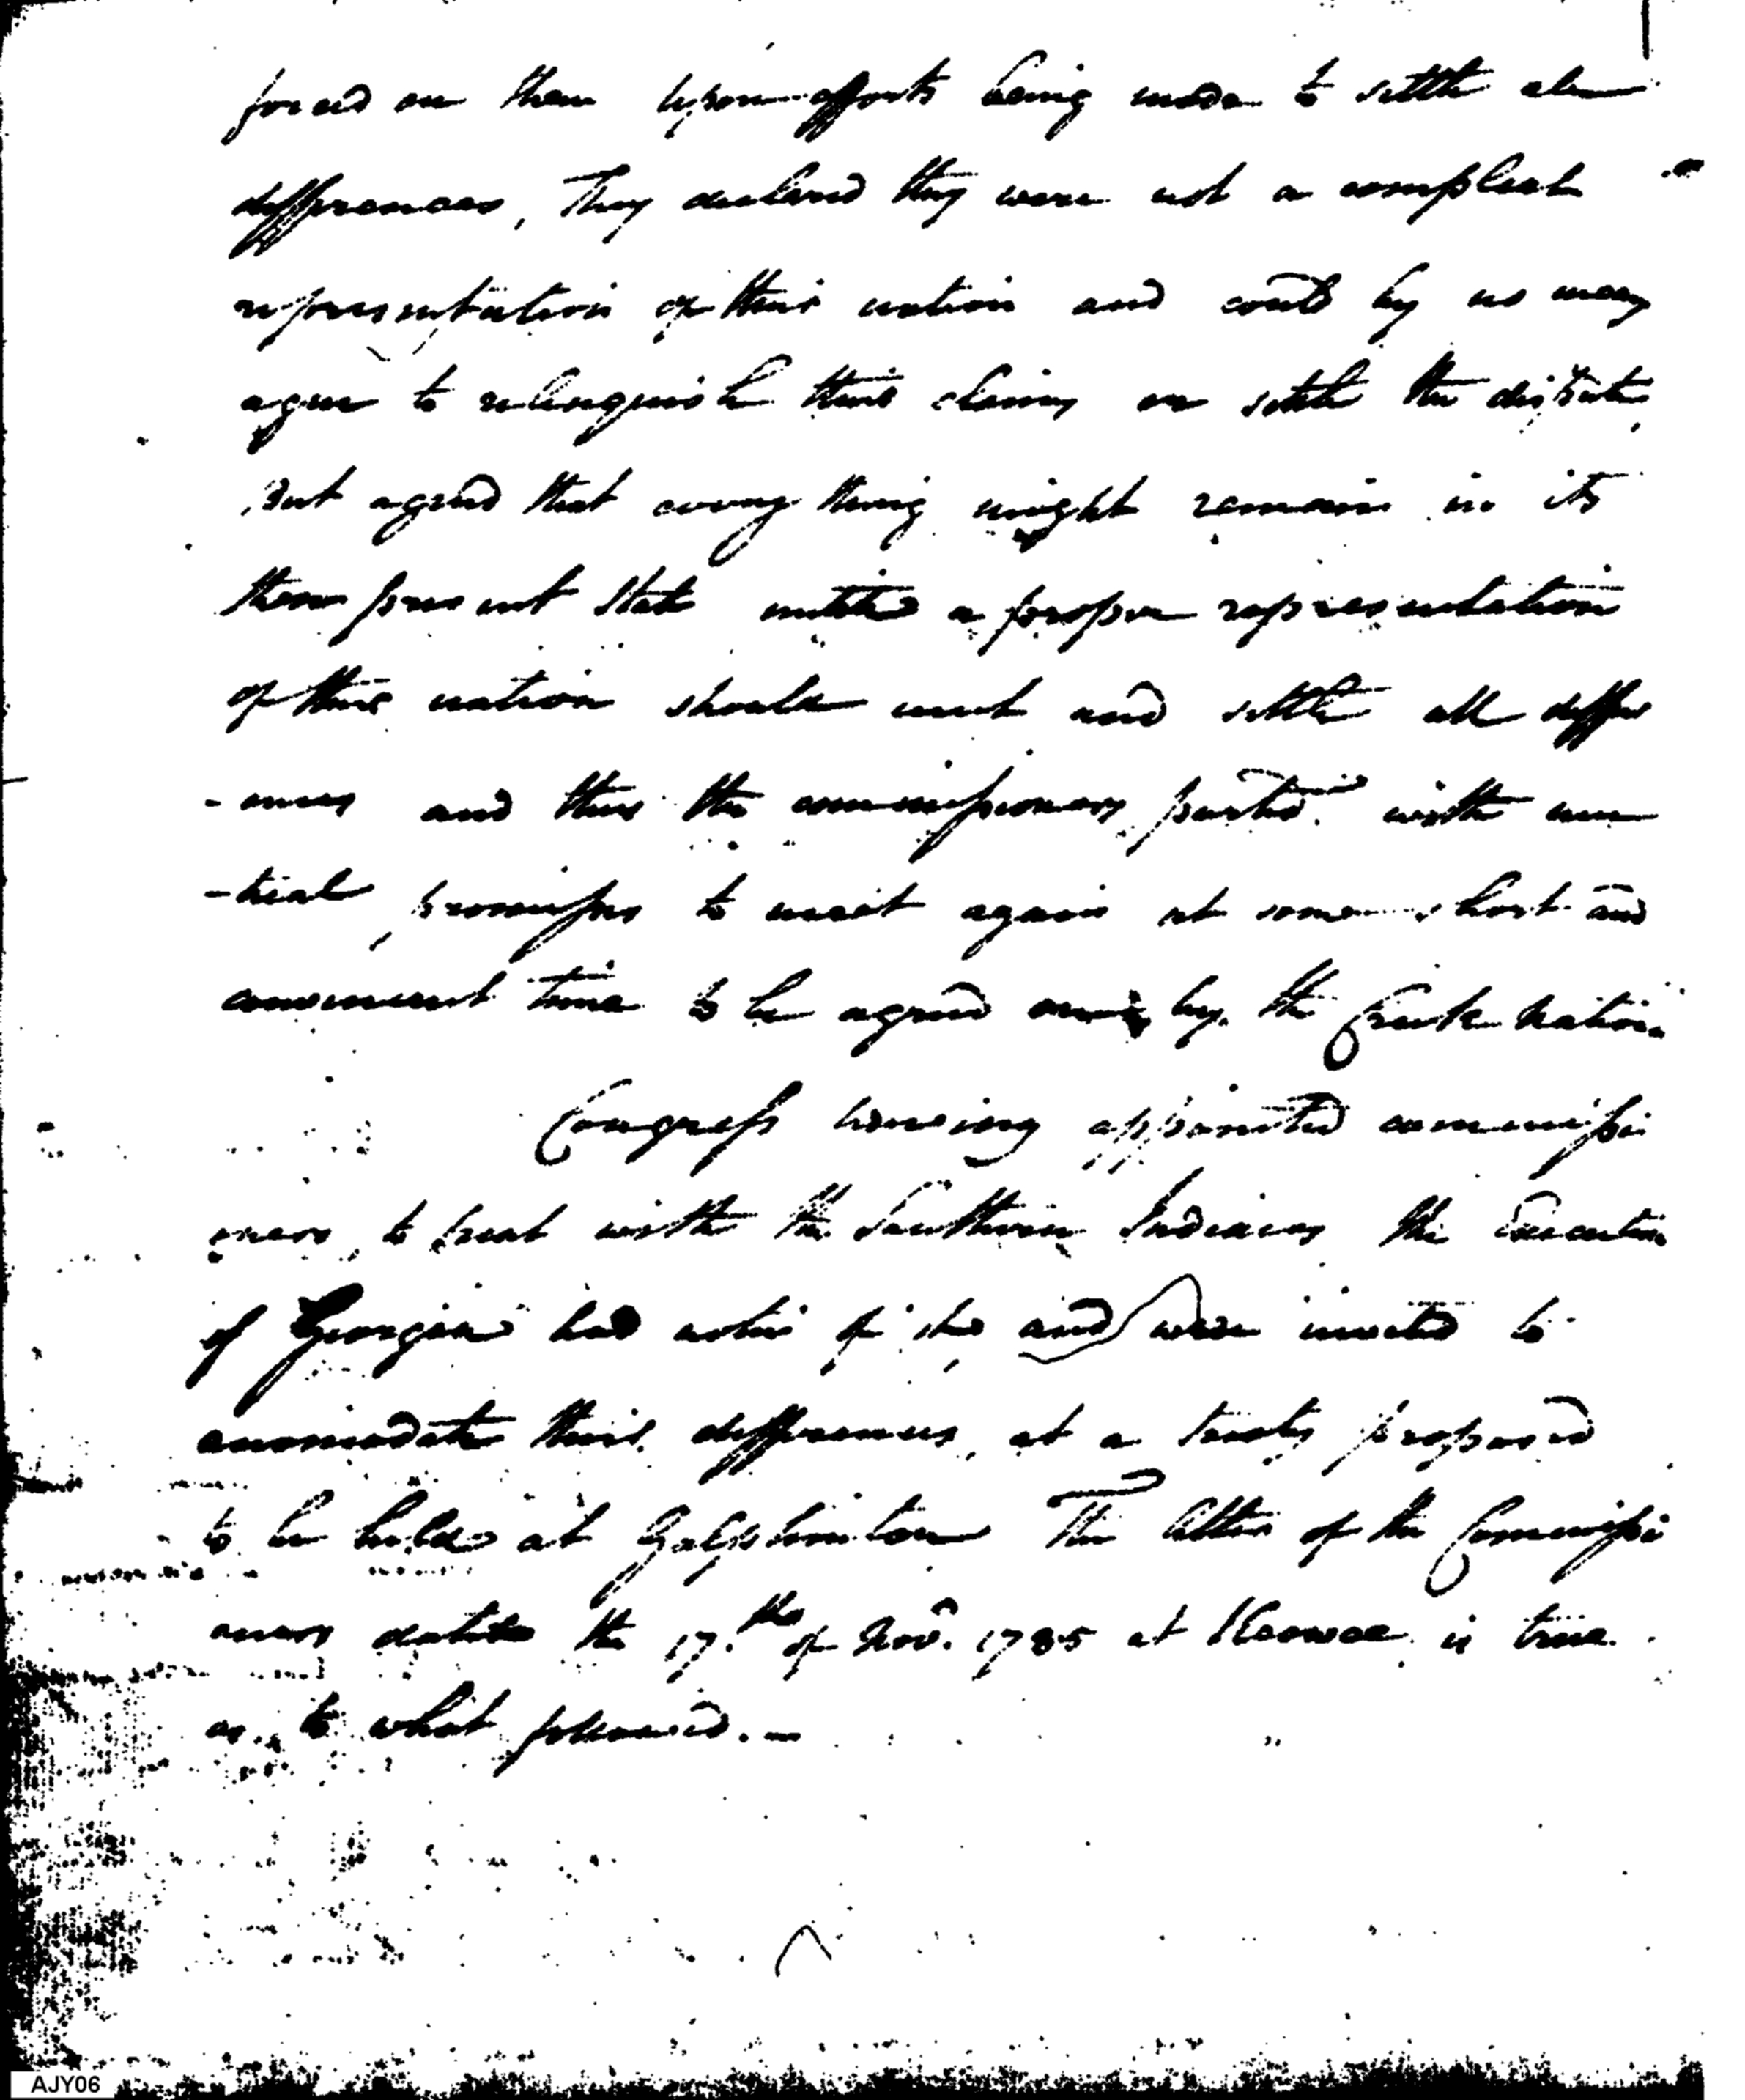 forced on them upon efforts being made to settle all
differences, They declared they were not a compleat
representation of their nation and could by no means
agree to relinquish their claims or settle the dispute,
but agreed that every thing might remain in its
then present state untill a proper representation
of their nation should meet and settle all differ
-ences and thus the commissioners parted with mu
-tual promises to meet again at some short and
convenient time to be agreed on by the Creek Nation
Congress having appointed commissi
oners, to treat with the Southern Indians the Executive
of Georgia had notice of it and were invited to
accomodate their differences, at a treaty proposed
to be held at Galphinton The letter of the Commissi
oners dated the 17.th of Nov.r 1785 at Keowee is true
as to what followed. –
AJY06